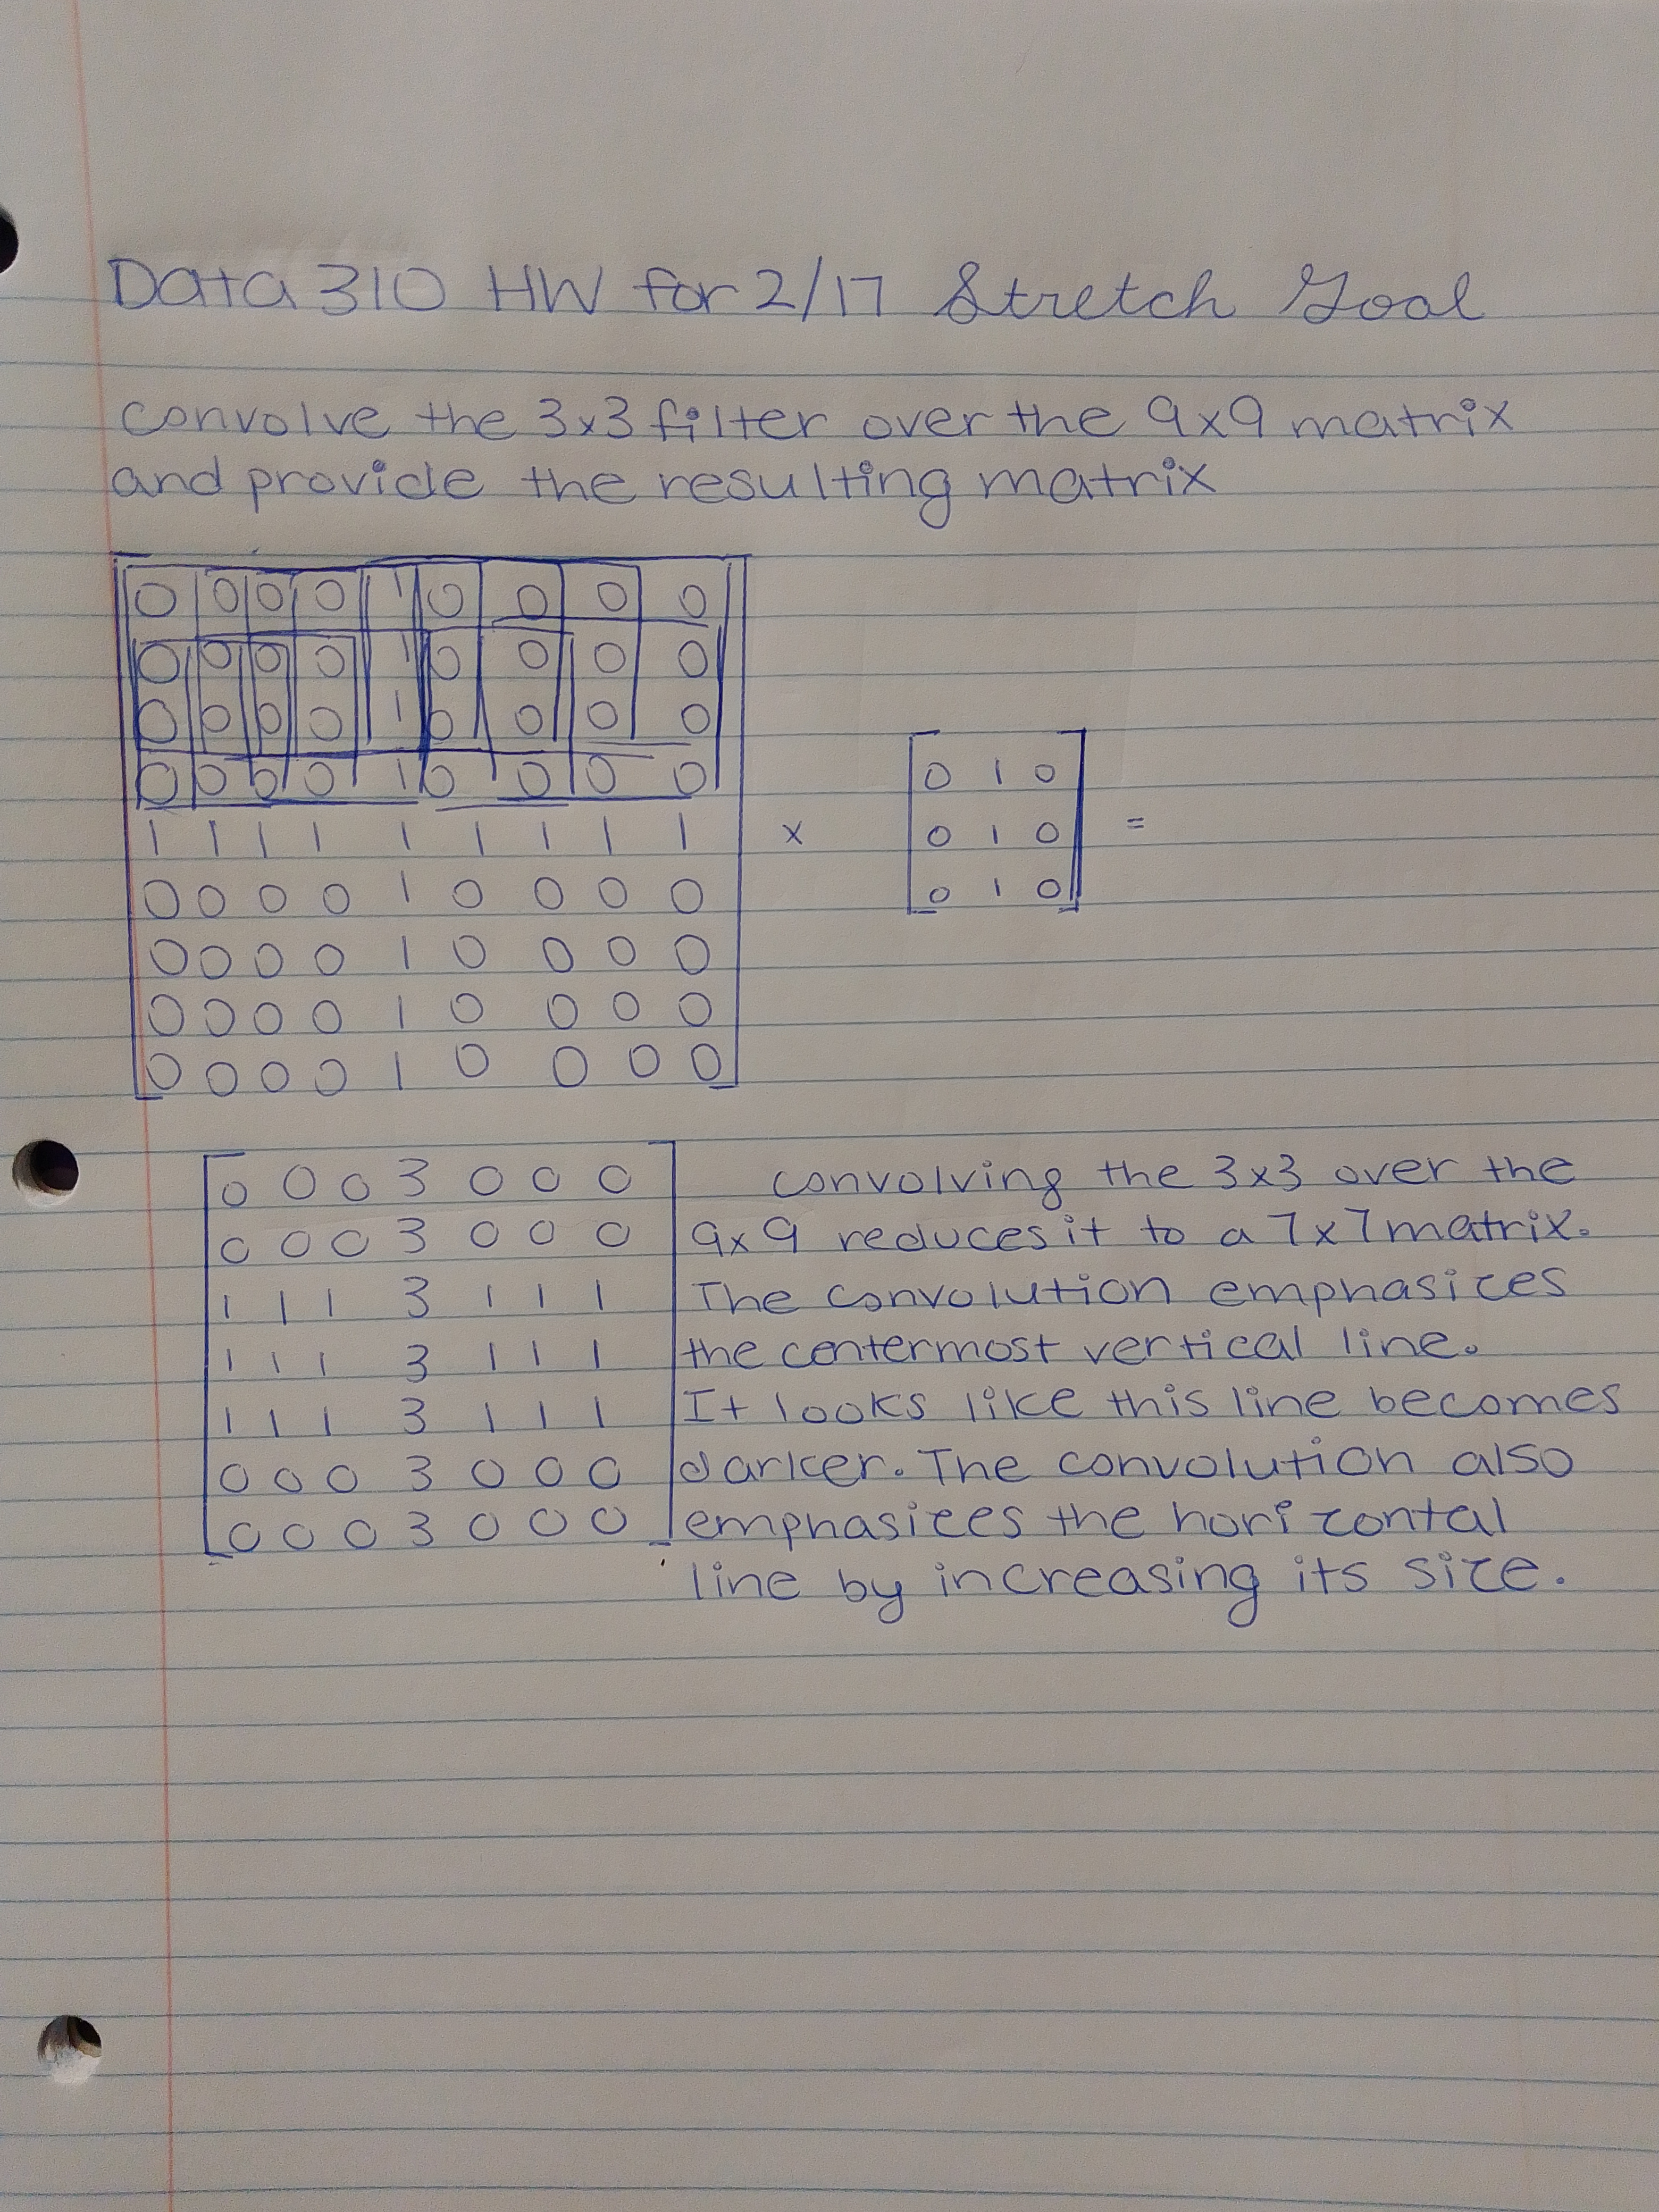 Data 310 HW for 2/17 Stretch Goal
convolve the 3x3 filter over the 9x9 matrix
and provide the resulting matrix
0 0 0 0 1 0 0 0 0
0 0 0 0 1 0 0 0 0
0 0 0 0 1 0 0 0 0
0 0 0 0 1 0 0 0 0
1 1 1 1 1 1 1 1 1
0 0 0 0 1 0 0 0 0
0 0 0 0 1 0 0 0 0
0 0 0 0 1 0 0 0 0
0 0 0 0 1 0 0 0 0
x
0 1 0
0 1 0
0 1 0
=
0 0 0 3 0 0 0
0 0 0 3 0 0 0
1 1 1 3 1 1 1
1 1 1 3 1 1 1
1 1 1 3 1 1 1
0 0 0 3 0 0 0
0 0 0 3 0 0 0
convolving the 3x3 over the
9x9 reduces it to a 7x7 matrix.
The convolution emphasizes
the centermost vertical line.
It looks like this line becomes
darker. The convolution also
emphasizes the horizontal
line by increasing its size.